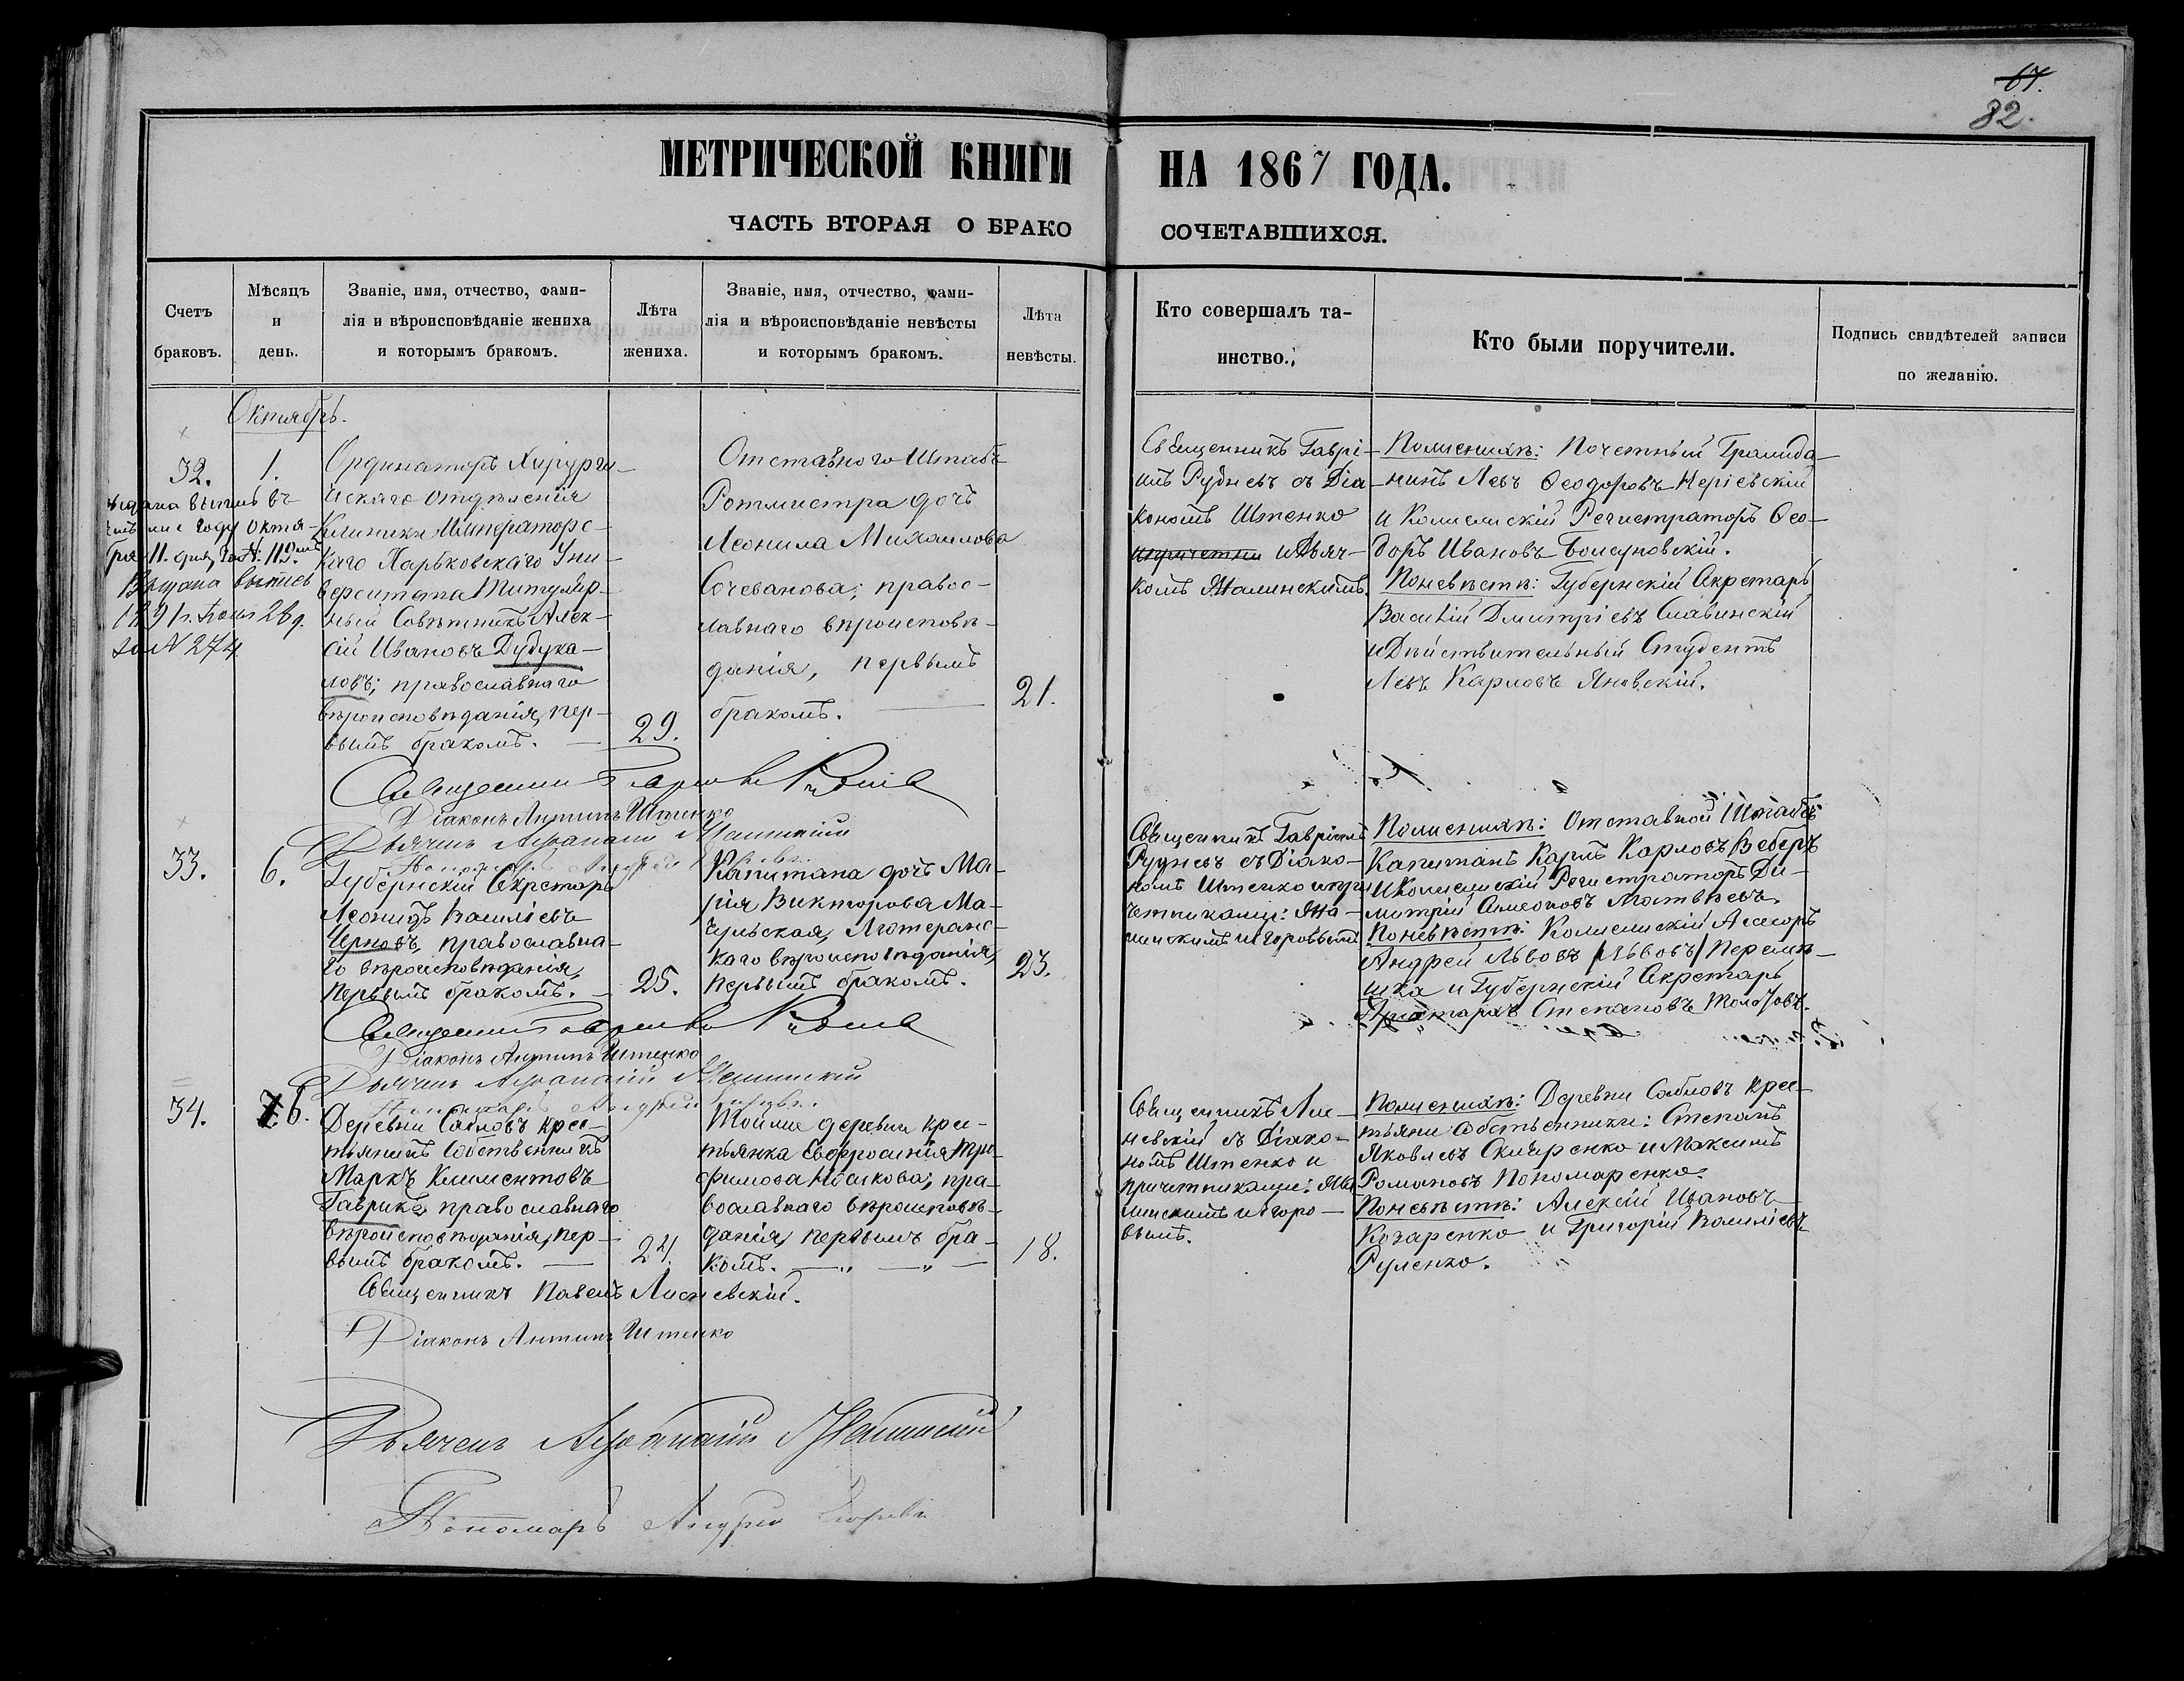 67.
82.
МЕТРИЧЕСКОЙ КНИГИ НА 1867 ГОДА.
ЧАСТЬ ВТОРАЯ О БРАКО СОЧЕТАВШИХСЯ.
Счетъ
браковъ.
Мѣсяцъ
и
день.
Званіе, имя, отчество, фами-
лія и вѣроисповѣданіе жениха
и которымъ бракомъ.
Лѣта
жениха.
Званіе, имя, отчество, фами-
лія и вѣроисповѣданіе невѣсты
и которымъ бракомъ.
Лѣта
невѣсты.
Кто совершалъ та-
инство.
Кто были поручители.
Подпись свидѣтелей записи
по желанію.
Октябрь.
32.
1.
году Октя-
бря 11. дня
Выдана выпись
за N 274
Ординаторъ Хирурги-
ческаго отдѣленія
Клиники Императорс-
каго Харьковскаго Уни-
верситета Титуляр-
ный Совѣтникъ Алек-
сѣй Ивановъ Дудука-
ловъ; православнаго
вѣроисповѣданія, пер-
вымъ бракомъ.
29.
Отставного Штабъ
Ротмистра дочь
Леонила Михаилова
Сочеванова; правос-
лавнаго вѣроисповѣ-
данія, первымъ
бракомъ.
21.
Священникъ Гаврі-
илъ Рудневъ съ Діа-
кономъ Штенко
и Дьяч-
комъ
По женихѣ: Почетный Гражда-
нинъ Левъ Ѳеодоровъ
и Коллежскій Регистраторъ Ѳео-
доръ Ивановъ
По невѣстѣ: Губернскій Секретарь
Василій Дмитріевъ Славинскій
и Дѣйствительный Студентъ
Левъ Карловъ Яновскій.
Священникъ Гавріилъ Рудневъ
Діаконъ Антипъ Штенко
Дьячекъ Афанасій
33.
6.
Губернскій Секретарь
Леонидъ Василіевъ
православна-
го вѣроисповѣданія,
первымъ бракомъ.
25.
Капитана дочь Ма-
рія Викторова Ма-
Лютеранс-
каго вѣроисповѣданія,
первымъ бракомъ.
23.
Священникъ Гавріилъ
Рудневъ съ Діако-
номъ Штенко и при-
четниками:
По женихѣ: Отставной Штабсъ
Капитанъ Карлъ Карловъ Веберъ
и Коллежскій Регистраторъ Ди-
митрій Симеоновъ Матвѣевъ.
По невѣстѣ: Коллежскій Ассесоръ
Андрей Львовъ /Львовъ/
и Губернскій Секретарь
Степановъ
Священникъ Гавріилъ Рудневъ
Діаконъ Антипъ Штенко
Дьячекъ Афанасій
34.
6.
Деревни крес-
тьянинъ Собственникъ
Маркъ Климентовъ
православнаго
вѣроисповѣданія, пер-
вымъ бракомъ.
24.
Той же деревни крес-
тьянка Евфросинія Тро-
фимова пра-
вославнаго вѣроисповѣ-
данія, первымъ бра-
комъ.
18.
Священникъ
съ Діако-
номъ Штенко и
причетниками:
По женихѣ: Деревни крес-
тьяне Собственники: Стефанъ
Яковлевъ и Максимъ
Романовъ Пономаренко.
По невѣстѣ: Алексѣй Ивановъ
и Григорій Василіевъ
Священникъ Павелъ
Діаконъ Антипъ Штенко
Дьячекъ Афанасій
Пономарь Андрей